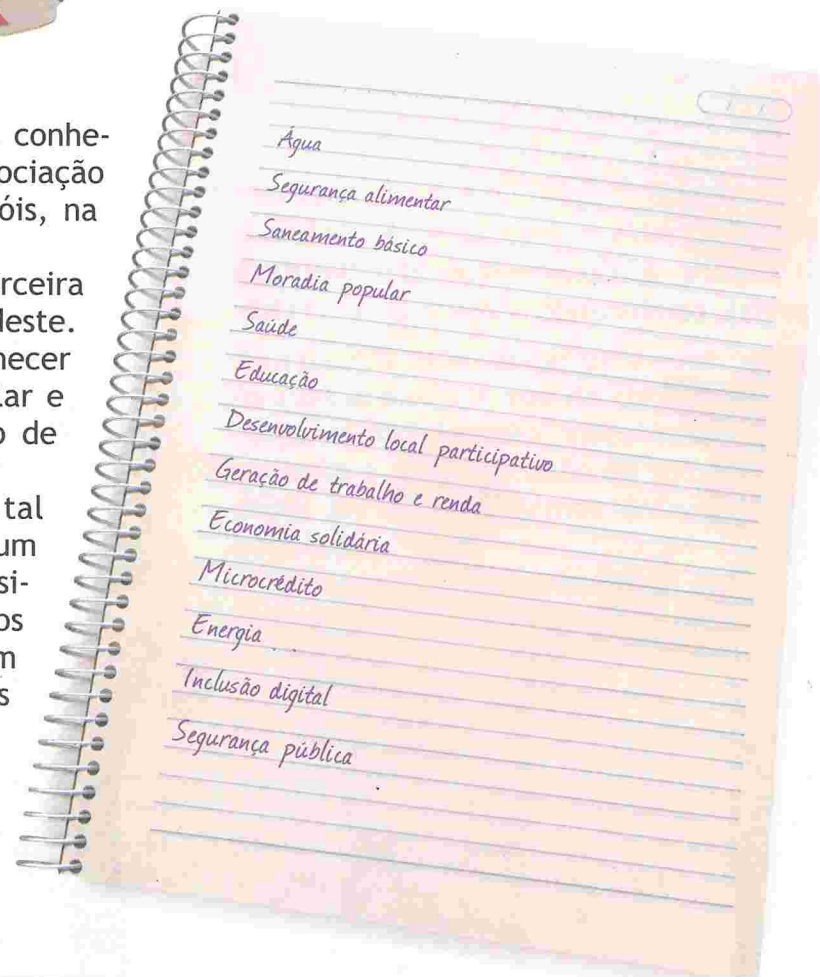 conhe-
ociação
óis, na
rceira
leste.
hecer
ar e
de
tal
um
si-
os
m
s
Água
Segurança alimentar
Saneamento básico
Moradia popular
Saúde
Educação
Desenvolvimento local participativo
Geração de trabalho e renda
Economia solidária
Microcrédito
Energia
Inclusão digital
Segurança pública